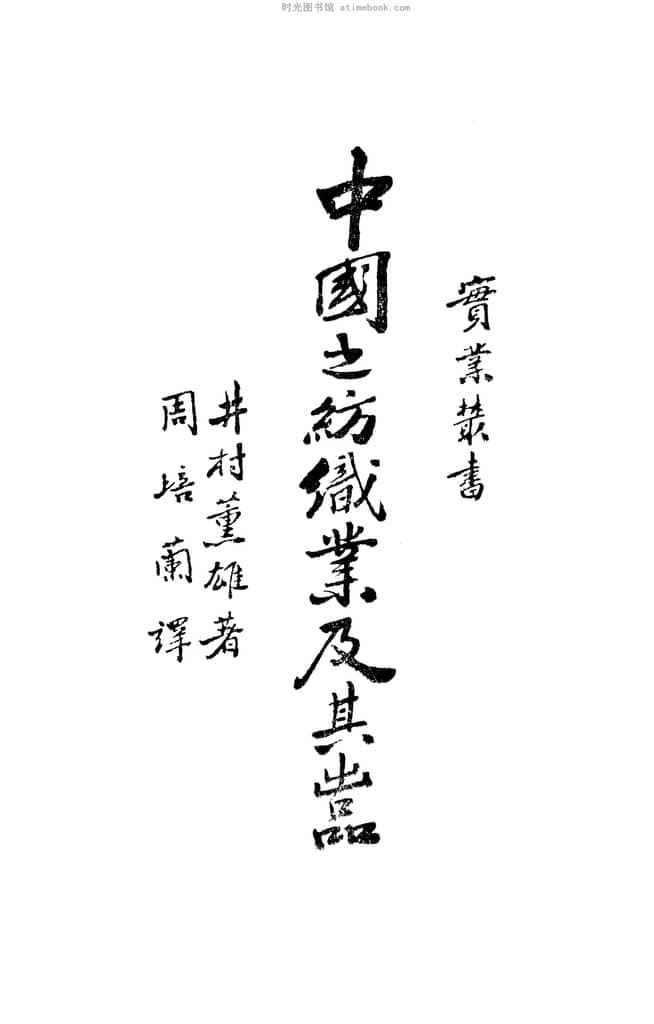 时光图书馆 atimebook.com
實業叢書
中國之紡織業及其出品
井村薰雄著
周培蘭譯